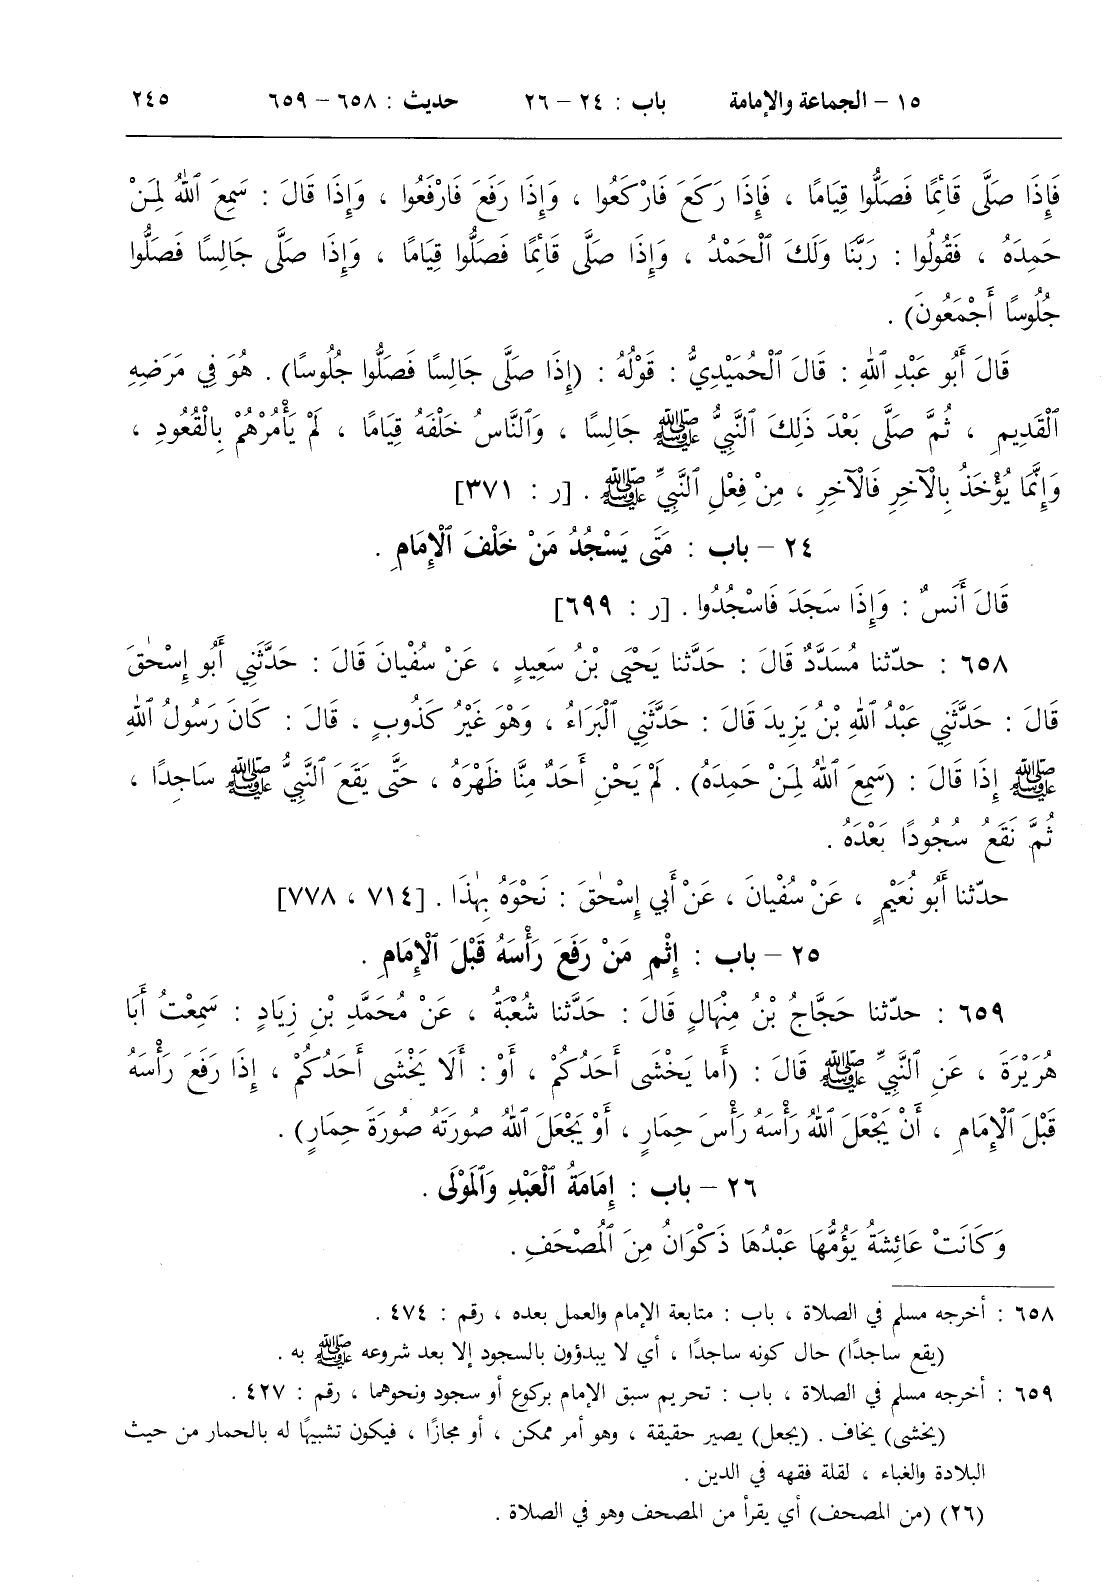 ١٥ – الجماعة والإمامة باب : ٢٤ – ٢٦ حديث : ٦٥٨ – ٦٥٩ ٢٤٥
فَإِذَا صَلَّى قَائِمًا فَصَلُّوا قِيَامًا ، فَإِذَا رَكَعَ فَارْكَعُوا ، وَإِذَا رَفَعَ فَارْفَعُوا ، وَإِذَا قَالَ : سَمِعَ ٱللهُ لِمَنْ
حَمِدَهُ ، فَقُولُوا : رَبَّنَا وَلَكَ ٱلْحَمْدُ ، وَإِذَا صَلَّى قَائِمًا فَصَلُّوا قِيَامًا ، وَإِذَا صَلَّى جَالِسًا فَصَلُّوا
جُلُوسًا أَجْمَعُونَ) .
قَالَ أَبُو عَبْدِ ٱللهِ : قَالَ ٱلْحُمَيْدِيُّ : قَوْلُهُ : (إِذَا صَلَّى جَالِسًا فَصَلُّوا جُلُوسًا) . هُوَ فِي مَرَضِهِ
ٱلْقَدِيمِ ، ثُمَّ صَلَّى بَعْدَ ذٰلِكَ ٱلنَّبِيُّ ﷺ جَالِسًا ، وَٱلنَّاسُ خَلْفَهُ قِيَامًا ، لَمْ يَأْمُرْهُمْ بِالْقُعُودِ ،
وَإِنَّمَا يُؤْخَذُ بِالْآخِرِ فَالْآخِرِ ، مِنْ فِعْلِ ٱلنَّبِيِّ ﷺ . [ر : ٣٧١]
٢٤ – باب : مَتَى يَسْجُدُ مَنْ خَلْفَ ٱلْإِمَامِ .
قَالَ أَنَسٌ : وَإِذَا سَجَدَ فَاسْجُدُوا . [ر : ٦٩٩]
٦٥٨ : حدّثنا مُسَدَّدٌ قَالَ : حَدَّثَنا يَحْيَى بْنُ سَعِيدٍ ، عَنْ سُفْيانَ قَالَ : حَدَّثَنِي أَبُو إِسْحٰقَ
قَالَ : حَدَّثَنِي عَبْدُ ٱللهِ بْنُ يَزِيدَ قَالَ : حَدَّثَنِي ٱلْبَرَاءُ ، وَهْوَ غَيْرُ كَذُوبٍ ، قَالَ : كَانَ رَسُولُ ٱللهِ
ﷺ إِذَا قَالَ : (سَمِعَ ٱللهُ لِمَنْ حَمِدَهُ) . لَمْ يَحْنِ أَحَدٌ مِنَّا ظَهْرَهُ ، حَتَّى يَقَعَ ٱلنَّبِيُّ ﷺ سَاجِدًا ،
ثُمَّ نَقَعُ سُجُودًا بَعْدَهُ .
حدّثنا أَبُو نُعَيْمٍ ، عَنْ سُفْيانَ ، عَنْ أَبِي إِسْحٰقَ : نَحْوَهُ بِهٰذَا . [٧١٤ ، ٧٧٨]
٢٥ – باب : إِثْمِ مَنْ رَفَعَ رَأْسَهُ قَبْلَ ٱلْإِمَامِ .
٦٥٩ : حدّثنا حَجَّاجُ بْنُ مِنْهَالٍ قَالَ : حَدَّثَنا شُعْبَةُ ، عَنْ مُحَمَّدِ بْنِ زِيَادٍ : سَمِعْتُ أَبَا
هُرَيْرَةَ ، عَنِ ٱلنَّبِيِّ ﷺ قَالَ : (أَما يَخْشَى أَحَدُكُمْ ، أَوْ : أَلَا يَخْشَى أَحَدُكُمْ ، إِذَا رَفَعَ رَأْسَهُ
قَبْلَ ٱلْإِمَامِ ، أَنْ يَجْعَلَ ٱللهُ رَأْسَهُ رَأْسَ حِمَارٍ ، أَوْ يَجْعَلَ ٱللهُ صُورَتَهُ صُورَةَ حِمَارٍ) .
٢٦ – باب : إِمَامَةُ ٱلْعَبْدِ وَٱلْمَوْلَى .
وَكَانَتْ عَائِشَةُ يَؤُمُّهَا عَبْدُهَا ذَكْوَانُ مِنَ ٱلْمُصْحَفِ .
٦٥٨ : أخرجه مسلم في الصلاة ، باب : متابعة الإمام والعمل بعده ، رقم : ٤٧٤ .
(يقع ساجدًا) حال كونه ساجدًا ، أي لا يبدؤون بالسجود إلا بعد شروعه ﷺ به .
٦٥٩ : أخرجه مسلم في الصلاة ، باب : تحريم سبق الإمام بركوع أو سجود ونحوهما ، رقم : ٤٢٧ .
(يخشى) يخاف . (يجعل) يصير حقيقة ، وهو أمر ممكن ، أو مجازًا ، فيكون تشبيهًا له بالحمار من حيث
البلادة والغباء ، لقلة فقهه في الدين .
(٢٦) (من المصحف) أي يقرأ من المصحف وهو في الصلاة .